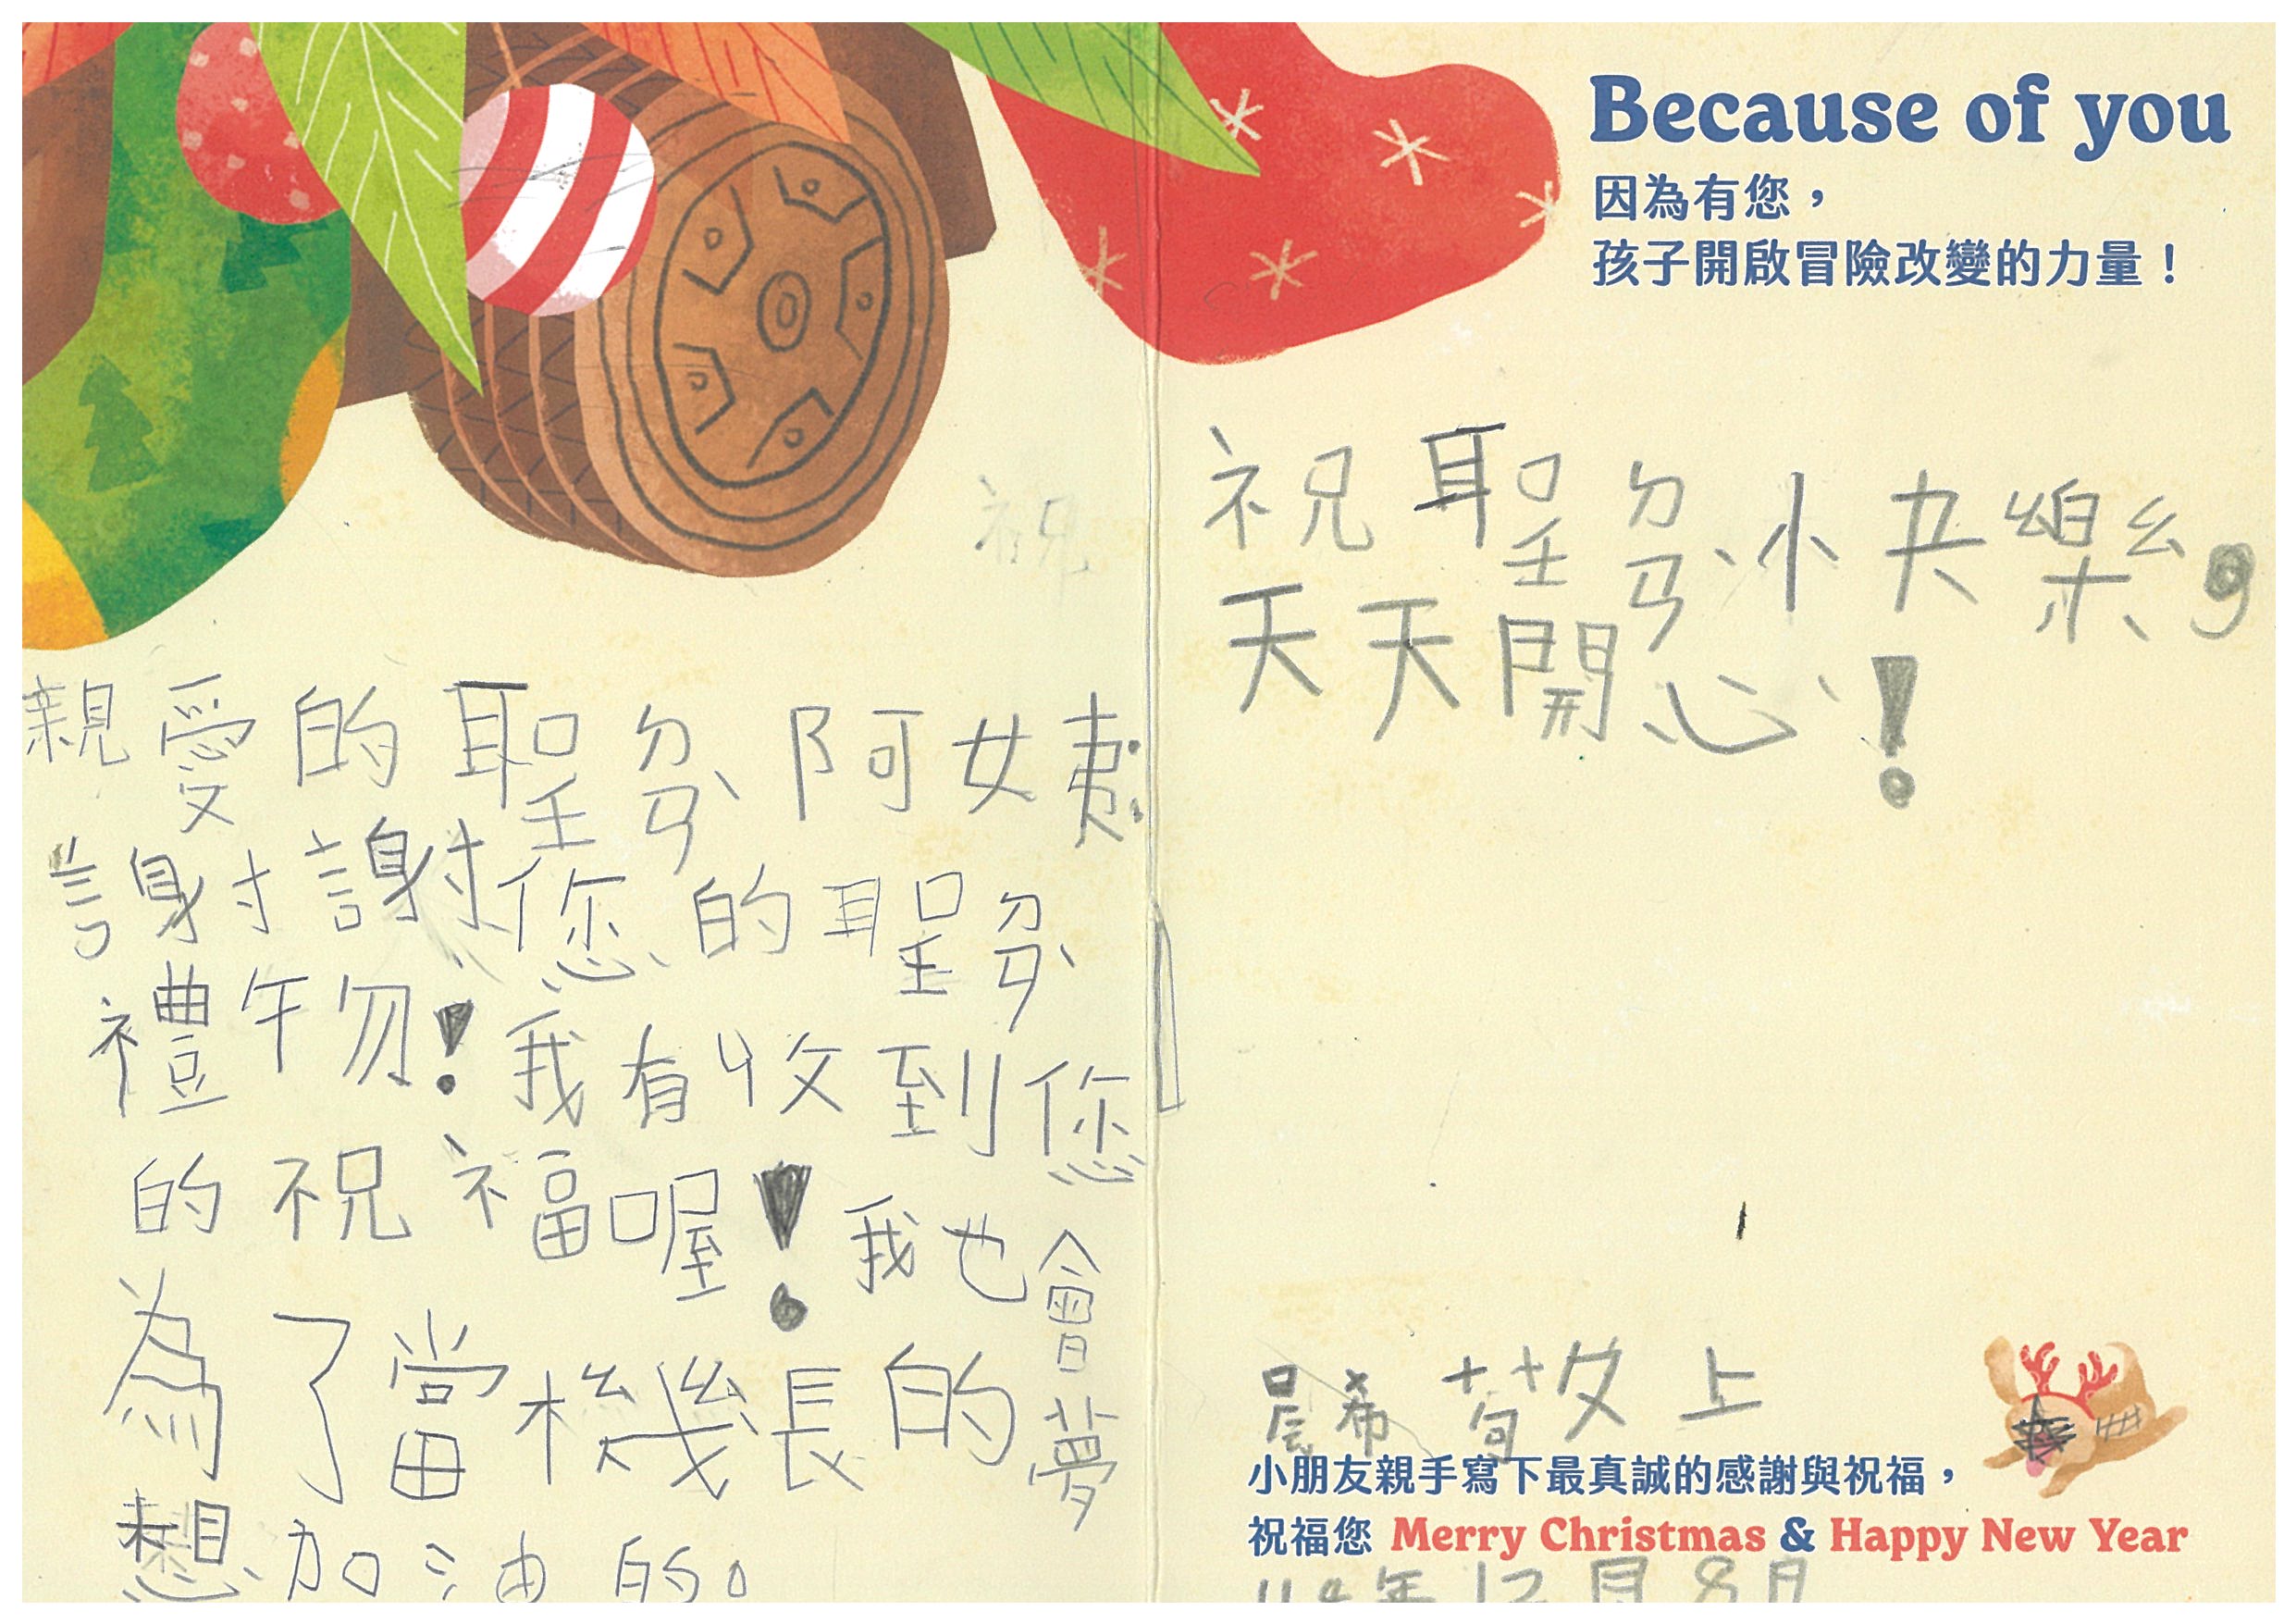 Because of you
因為有您，
孩子開啟冒險改變的力量！
親愛的聖ㄉㄢˋ阿姨：
謝謝您的聖ㄉㄢˋ
禮物！我有收到您
的祝福喔！我也會
為了當機長的夢
想加油的。
祝
祝聖ㄉㄢˋ小快樂，
天天開心！
晨希 敬上
小朋友親手寫下最真誠的感謝與祝福，
祝福您 Merry Christmas & Happy New Year
年12月8日